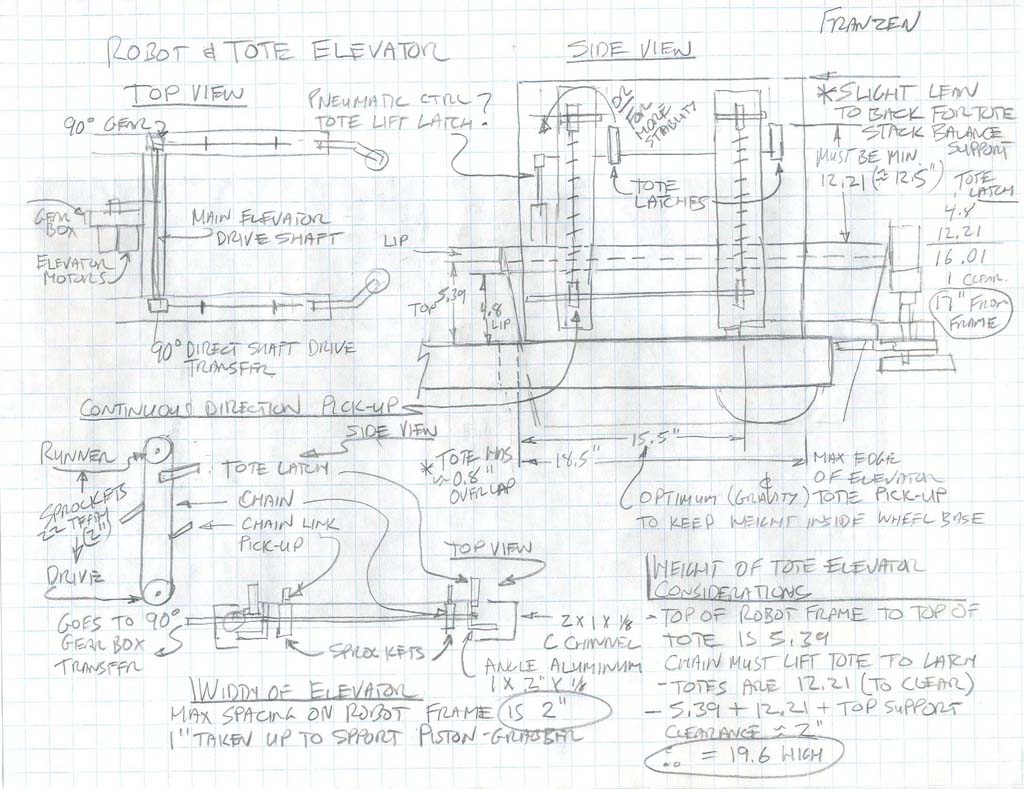 FRANZEN
ROBOT & TOTE ELEVATOR
SIDE VIEW
TOP VIEW
90° GEAR?
PNEUMATIC CTRL?
TOTE LIFT LATCH?
OR
FOR
MORE
STABLITY
* SLIGHT LEAN
TO BACK FOR TOTE
STACK BALANCE
SUPPORT
MUST BE MIN.
12.21 (≈ 12.5")
TOTE
LATCH
4.8
12.21
16.01
1 CLEAR.
17" FROM
FRAME
TOTE
LATCHES
GEAR
BOX
MAIN ELEVATOR
DRIVE SHAFT
ELEVATOR
MOTORS
LIP
TOP 5.39
4.8
LIP
90° DIRECT SHAFT DRIVE
TRANSFER
CONTINUOUS DIRECTION PICK-UP
SIDE VIEW
RUNNER
SPROCKETS
22 TEETH
(2")
DRIVE
TOTE LATCH
CHAIN
CHAIN LINK
PICK-UP
* TOTE HAS
≈ 0.8"
OVERLAP
15.5"
18.5"
MAX EDGE
OF ELEVATOR
TOTE PICK-UP
OPTIMUM (GRAVITY) &
TO KEEP WEIGHT INSIDE WHEEL BASE
TOP VIEW
GOES TO 90°
GEAR BOX
TRANSFER
SPROCKETS
2 X 1 X 1/8
C CHANNEL
ANGLE ALUMINUM
1 X 2" X 1/8
WIDDY OF ELEVATOR
MAX SPACING ON ROBOT FRAME IS 2"
1" TAKEN UP TO SPPORT PISTON-GRABBER
HEIGHT OF TOTE ELEVATOR
CONSIDERATIONS
- TOP OF ROBOT FRAME TO TOP OF
TOTE IS 5.39
CHAIN MUST LIFT TOTE TO LATCH
- TOTES ARE 12.21 (TO CLEAR)
- 5.39 + 12.21 + TOP SUPPORT
CLEARANCE ≈ 2"
∴ = 19.6 HIGH